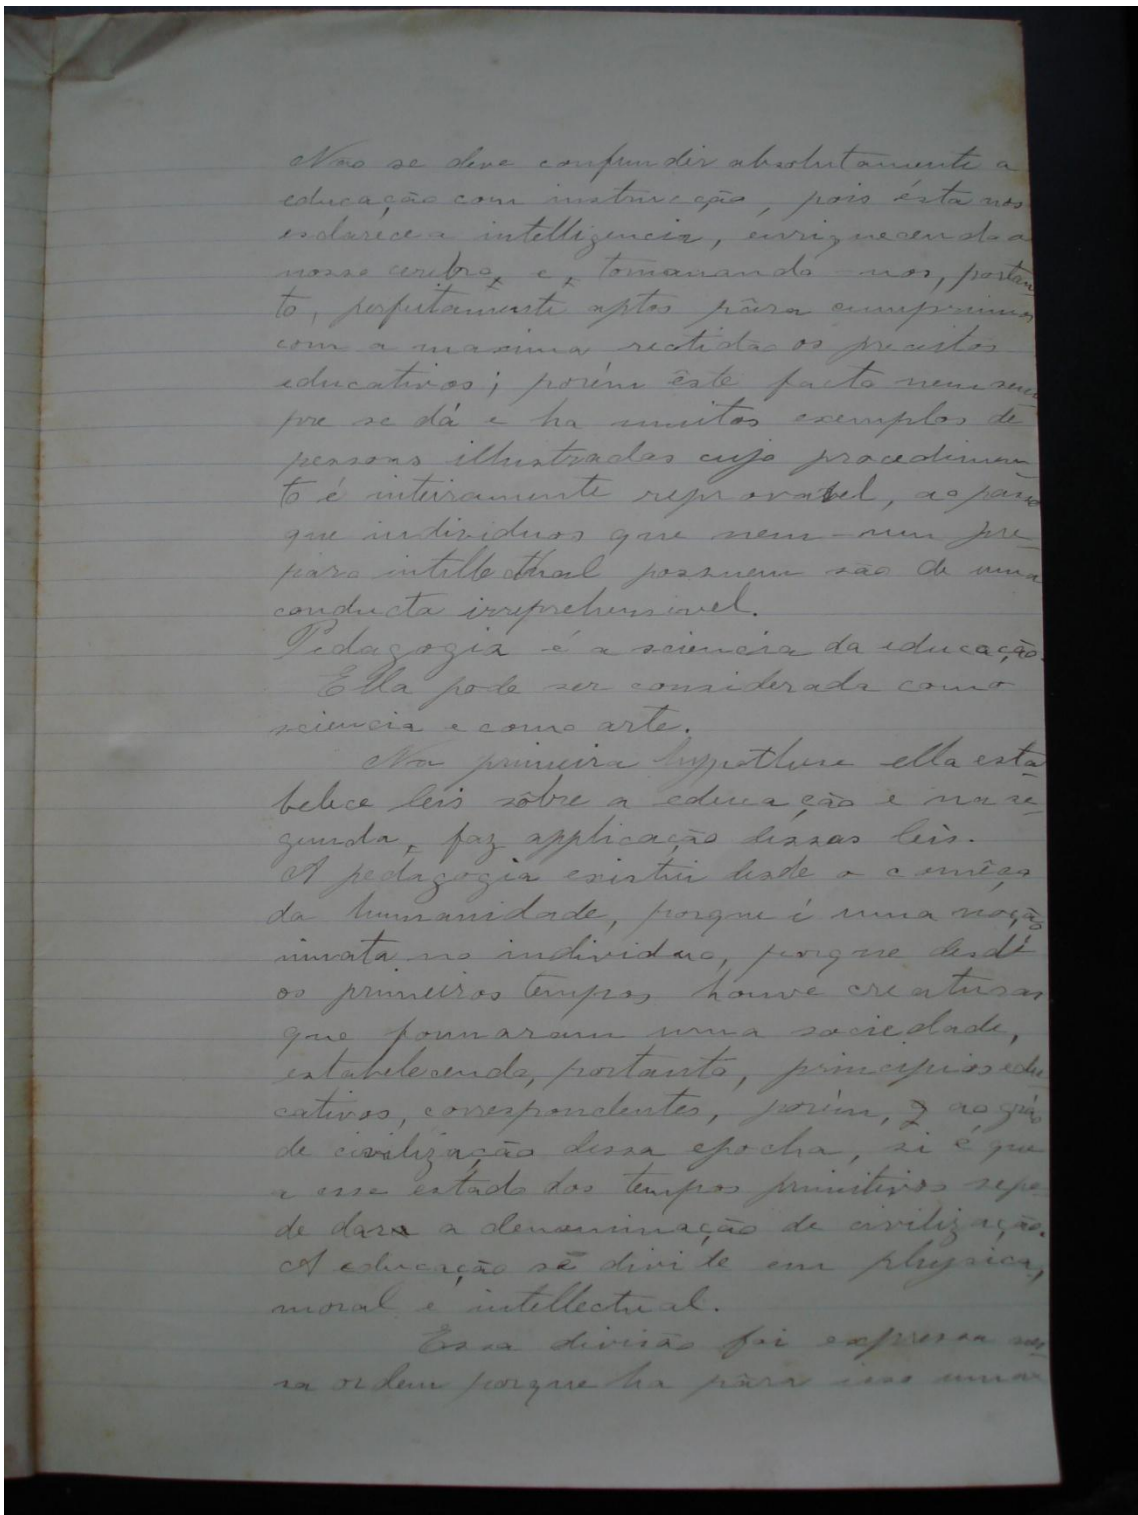 Não se deve confundir absolutamente a
educação com instrucção, pois ésta nos
esclarece a intelligencia, enriquecendo o
nosso cerebro, e, tornando-nos, portan
to, perfeitamente aptos pâra cumprirmos
com a maxima rectidão os preceitos
educativos; porém êste facto nem sem
pre se dá e ha muitos exemplos de
pessoas illustradas cujo procedimen
to é inteiramente reprovavel, ao passo
que individuos que nem-um pre-
paro intellectual possuem são de uma
conducta irreprehensivel.
Pedagogia é a sciencia da educação.
Ella pode ser considerada como
sciencia e como arte.
Na primeira hypothese ella esta-
belece leis sôbre a educação e na se-
gunda, faz applicação dessas leis.
A pedagogia existiu desde o comêço
da humanidade, porque é uma noção
innata no individuo, porque desde
os primeiros tempos houve creaturas
que formaram uma sociedade,
estabelecendo, portanto, principios edu
cativos, correspondentes, porém, ao gráo
de civilização dessa epocha, si é que
a esse estado dos tempos primitivos se po
de dar a denominação de civilização.
A educação se divide em physica,
moral e intellectual.
Essa divisão foi expressa nes-
sa ordem porque ha pâra isso uma